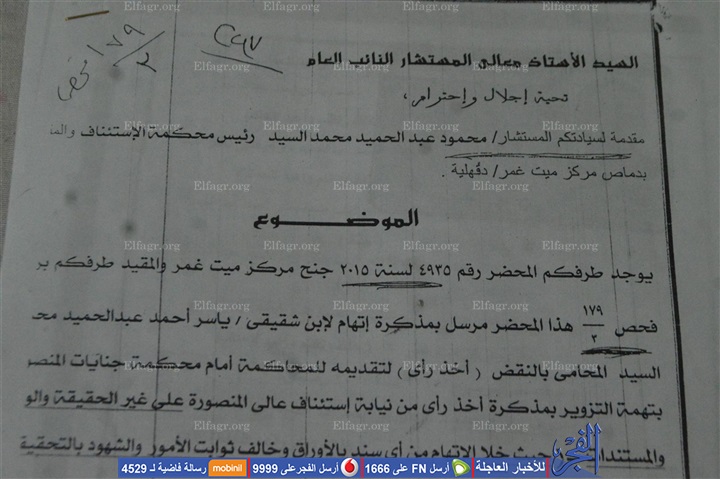 ٢٤٧
١٧٩
٢
فحص
السيد الأستاذ معالى المستشار النائب العام
تحية إجلال و إحترام ،
مقدمة لسيادتكم المستشار/ محمود عبد الحميد محمد السيد رئيس محكمة الإستئناف والما
بدماص مركز ميت غمر/ دقهلية .
الموضـــوع
يوجد طرفكم المحضر رقم ٤٩٣٥ لسنة ٢٠١٥ جنح مركز ميت غمر والمقيد طرفكم بر
فحص ١٧٩/٢ هذا المحضر مرسل بمذكرة إتهام لإبن شقيقى / ياسر أحمد عبدالحميد محـ
السيد المحامى بالنقض ( أخذ رأى ) لتقديمه للمحاكمة أمام محكمة جنايات المنصو
بتهمة التزوير بمذكرة أخذ رأى من نيابة إستئناف عالى المنصورة على غير الحقيقة والو
والمستندات حيث خلا الإتهام من أى سند بالأوراق وخالف ثوابت الأمور والشهود بالتحقيق
Elfagr.org
الفجر
للأخبار العاجلة
أرسل FN على 1666
أرسل الفجر على 9999
mobinil
رسالة فاضية لـ 4529